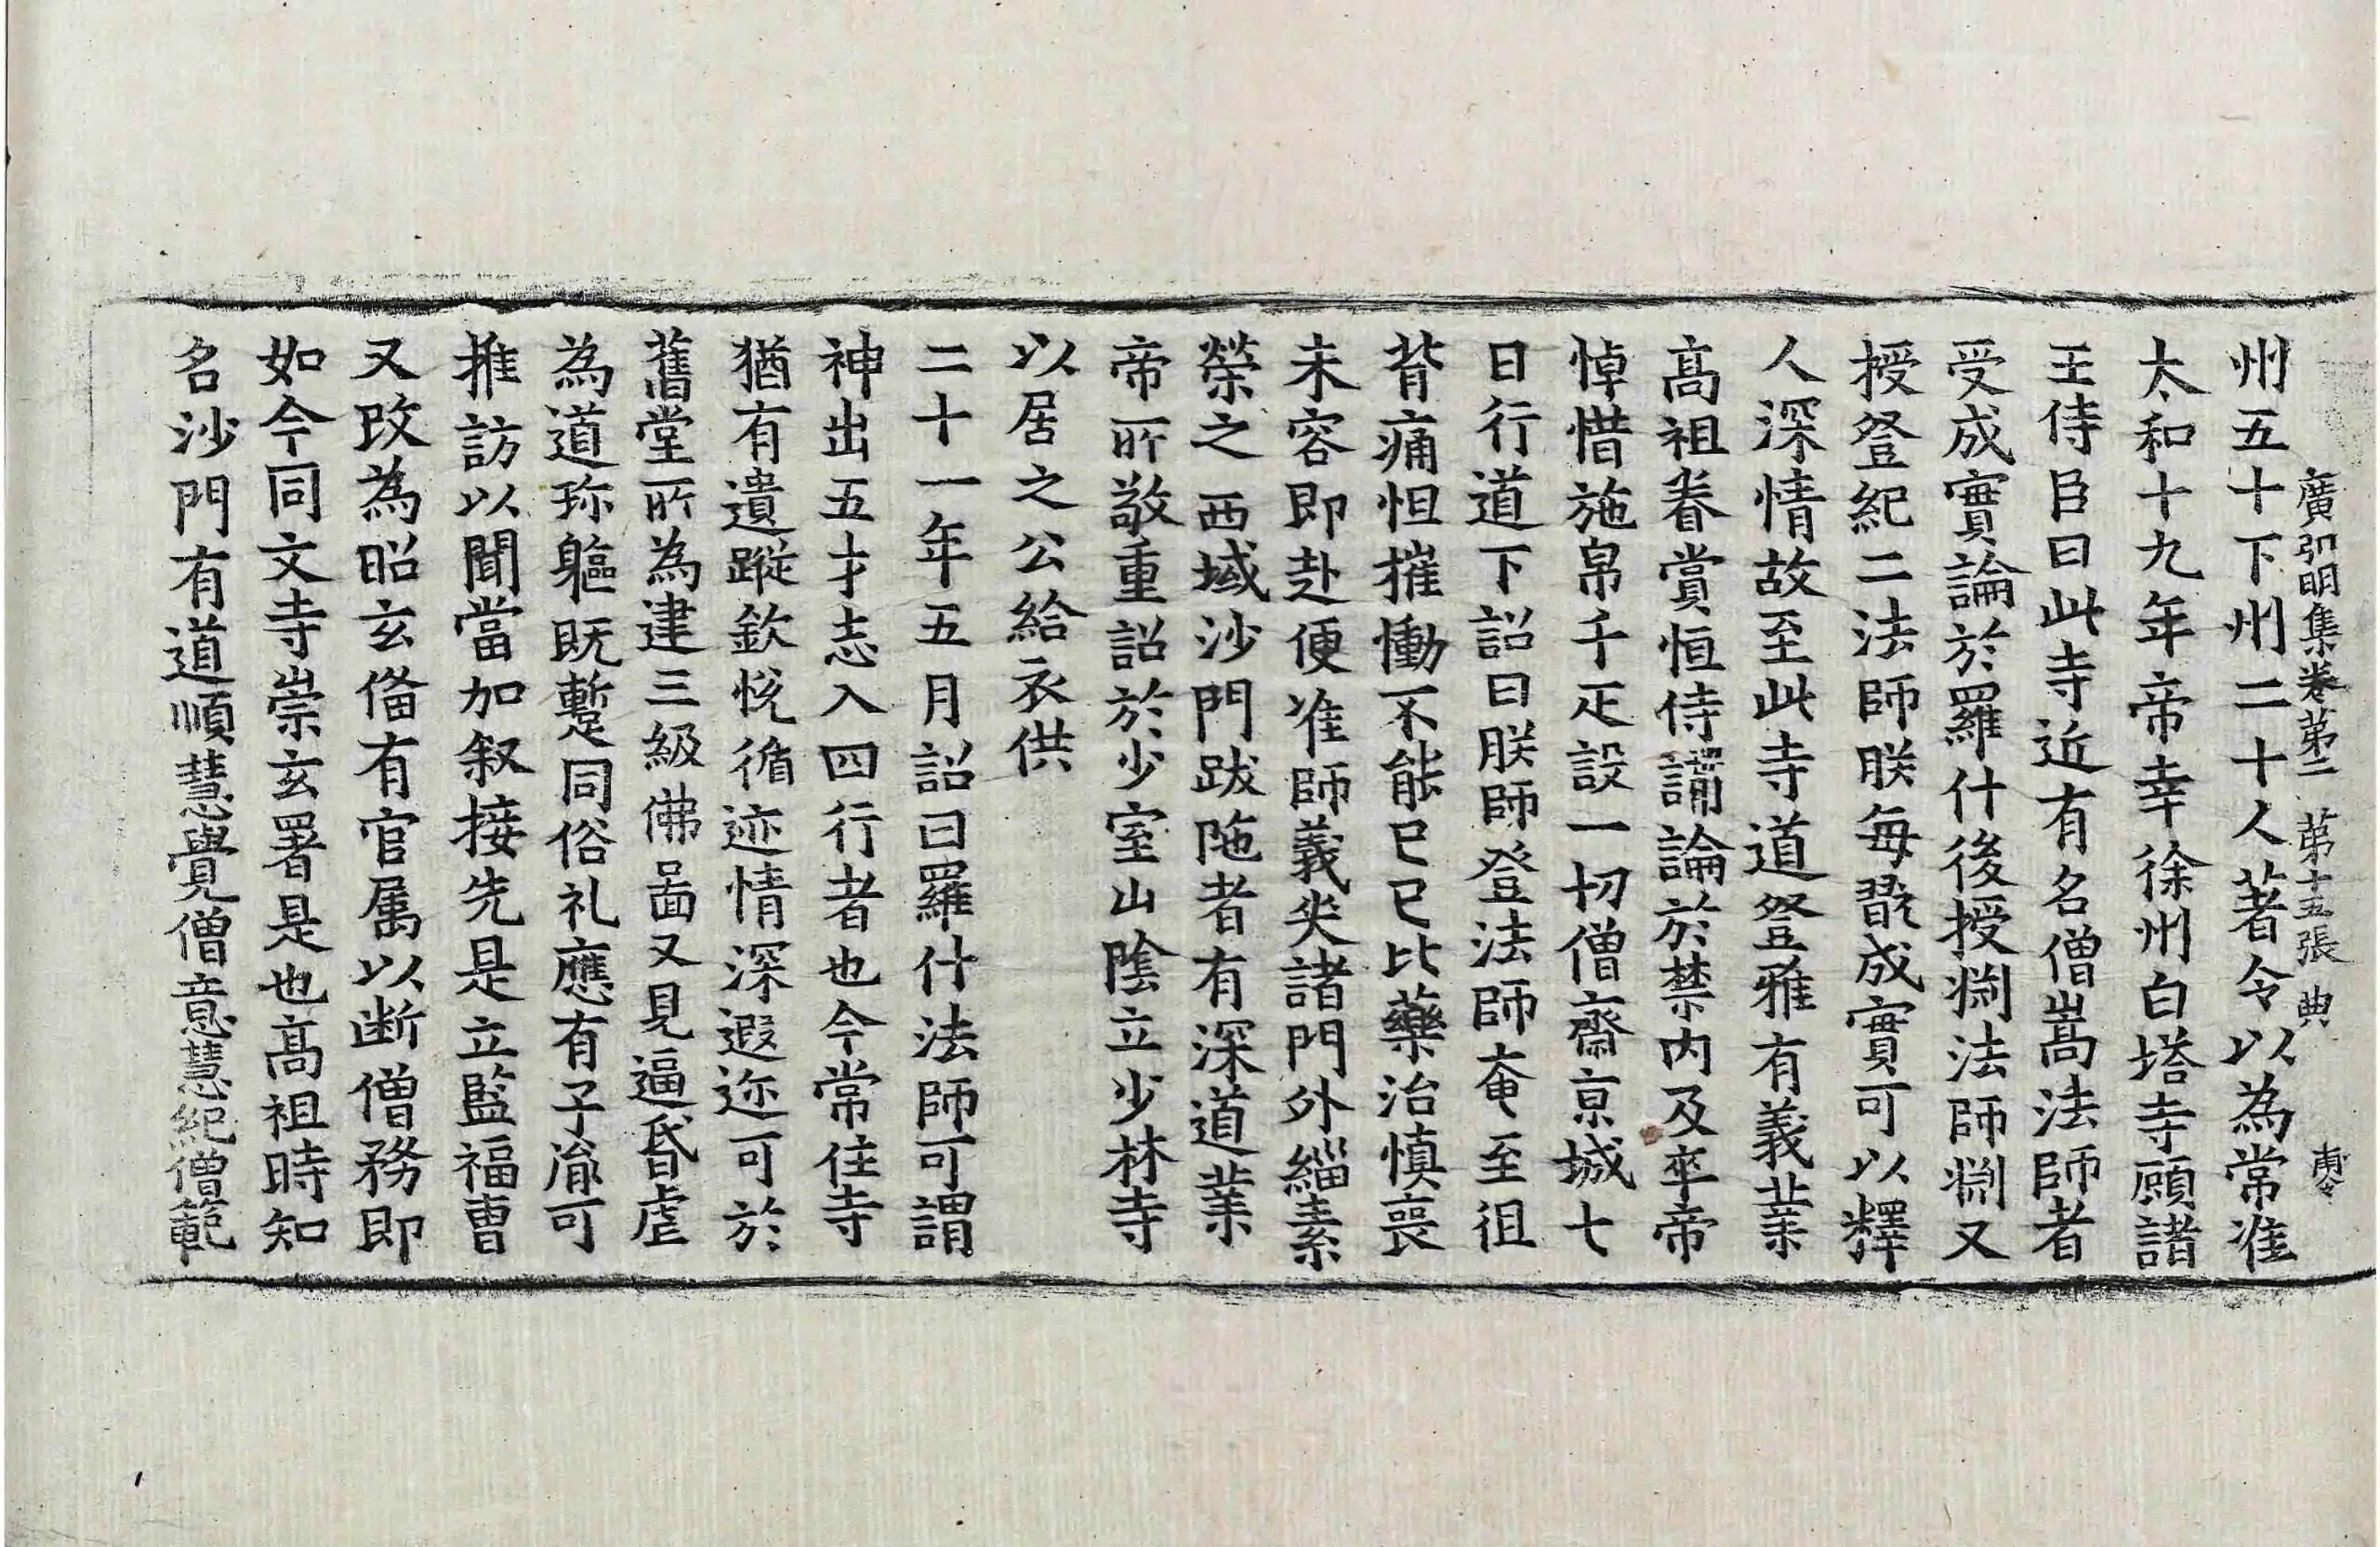 廣弘明集卷第二 第十五張 典
州五十下州二十人著令以為常准
太和十九年帝幸徐州白塔寺顧諸
王侍臣曰此寺近有名僧嵩法師者
受成實論於羅什後授淵法師淵又
授登紀二法師朕每翫成實可以釋
人深情故至此寺道登雅有義業
髙祖眷賞恒侍講論於禁內及卒帝
悼惜施帛千疋設一切僧齋京城七
日行道下詔曰朕師登法師奄至徂
背痛怛摧慟不能已已比藥治慎喪
未容即赴便准師義哭諸門外緇素
榮之 西域沙門跋陁者有深道業
帝所敬重詔於少室山陰立少林寺
以居之公給衣供
二十一年五月詔曰羅什法師可謂
神出五才志入四行者也今常住寺
猶有遺蹤欽悅循迹情深遐迩可於
舊堂所為建三級佛啚又見逼昏虐
為道珎軀既蹔同俗礼應有子胤可
推訪以聞當加叙接先是立監福曹
又改為昭玄俻有官属以断僧務即
如今同文寺崇玄署是也髙祖時知
名沙門有道順慧覺僧意慧紀僧範